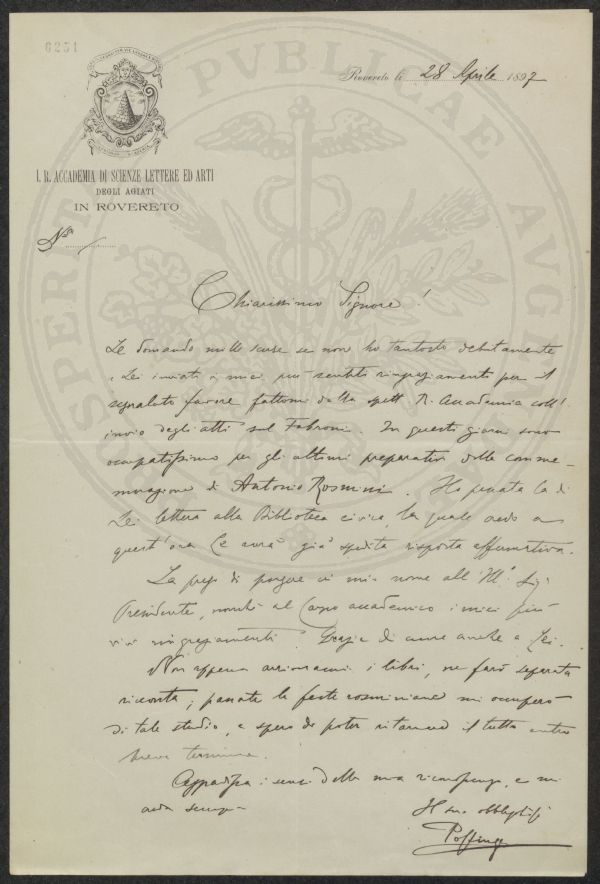 6251
Rovereto li 28 Aprile 1897
I. R. ACCADEMIA DI SCIENZE LETTERE ED ARTI
DEGLI AGIATI
IN ROVERETO
N.o
Chiarissimo Signore!
Le domando mille scuse se non ho tantosto debitamente
a Lei inviati i miei più sentiti ringraziamenti per il
segnalato favore fattomi dalla spett. R. Accademia coll'
invio degli atti sul Fabroni. In questi giorni sono
occupatissimo per gli ultimi preparativi della comme-
morazione di Antonio Rosmini. Ho passata la di
Lei lettera alla Biblioteca civica, la quale credo a
quest'ora Le avrà già spedita risposta affermativa.
La prego di porgere in mio nome all'Ill.o Sig.
Presidente, nonché al Corpo accademico i miei più
vivi ringraziamenti. Grazie di cuore anche a Lei.
Non appena arriveranno i libri, ne farò separata
ricevuta; passate le feste rosminiane mi occuperò
di tale studio, e spero di poter ritornare il tutto entro
breve termine.
i sensi della mia riconoscenza, e mi
creda sempre
Il suo obbligatiss.